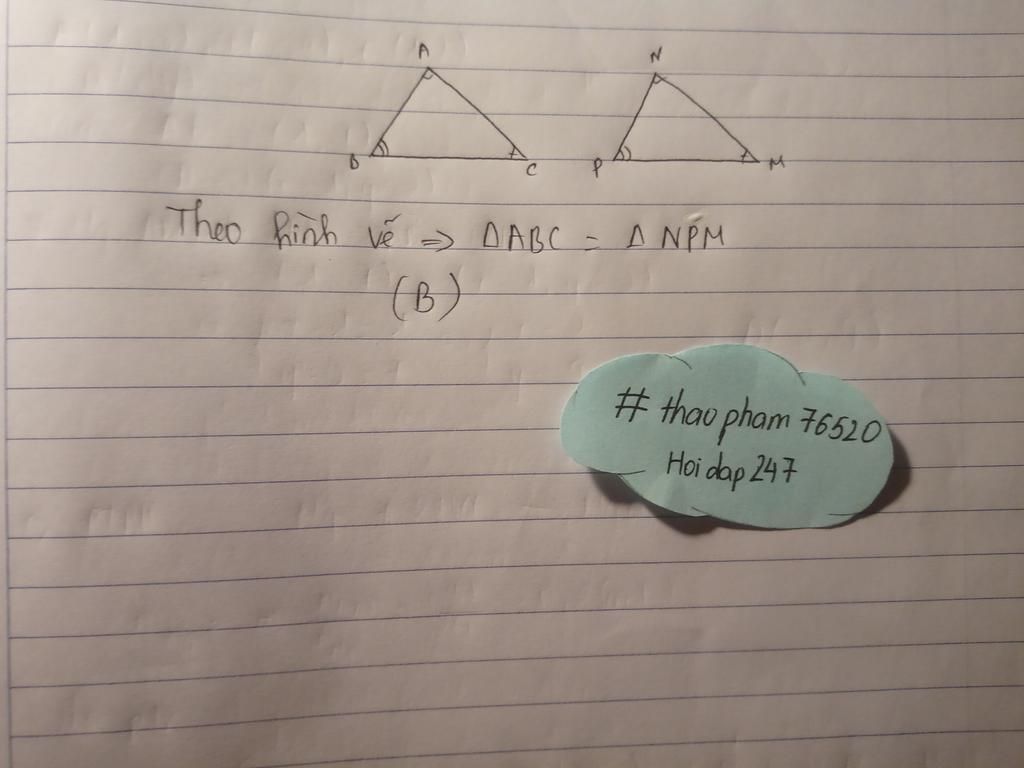 A
N
B
C
P
M
Theo hình vẽ => ΔABC = ΔNPM
(B)
# thaopham 76520
Hoidap247